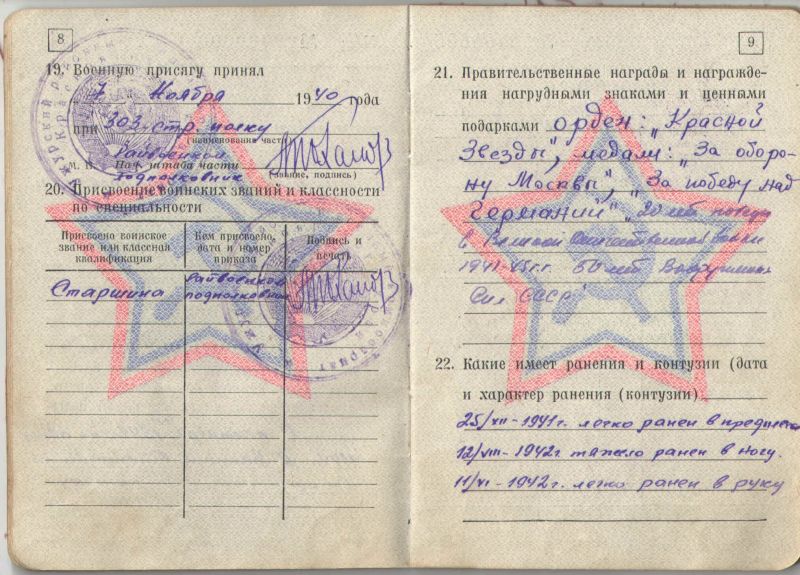 8
19. Военную присягу принял
„ 7 " Ноября 1940 года
при 303 стр. полку
(наименование части)
Райвоенком
М. П. Нач. штаба части
подполковник
(звание, подпись)
20. Присвоение воинских званий и классности
по специальности
Присвоено воинское звание или классная квалификация
Кем присвоено, дата и номер приказа
Подпись и печать
Старшина
Райвоенком
подполковник
9
21. Правительственные награды и награжде-
ния нагрудными знаками и ценными
подарками орден: „Красной
Звезды", медали: „За оборо-
ну Москвы", „За победу над
Германией" „20 лет победы
в Великой Отечественной войне
1941-45 г.г. 50 лет Вооруженных
Сил СССР"
22. Какие имеет ранения и контузии (дата
и характер ранения (контузии)
25/XII-1941г. легко ранен в
12/VIII-1942г. тяжело ранен в ногу.
11/VI-1942г. легко ранен в руку